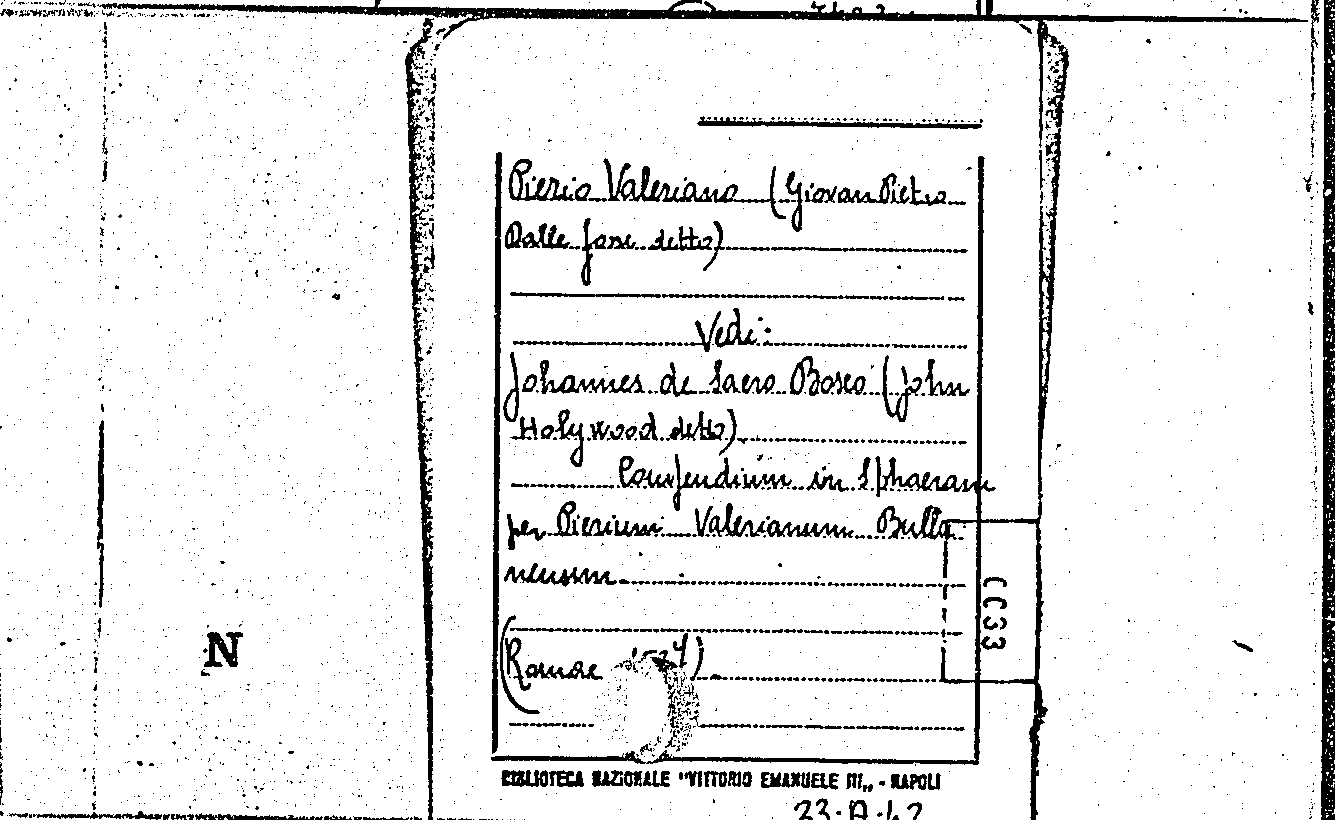 Pierio Valeriano (Giovan Pietro
Dalle fosse detto)
Vedi:
Johannes de Sacro Bosco (John
Holywood detto)
Compendium in Sphaeram
per Pierium Valerianum Bellu
nensem.
(Romae 1537)
CC33
N
BIBLIOTECA NAZIONALE "VITTORIO EMANUELE III" - NAPOLI